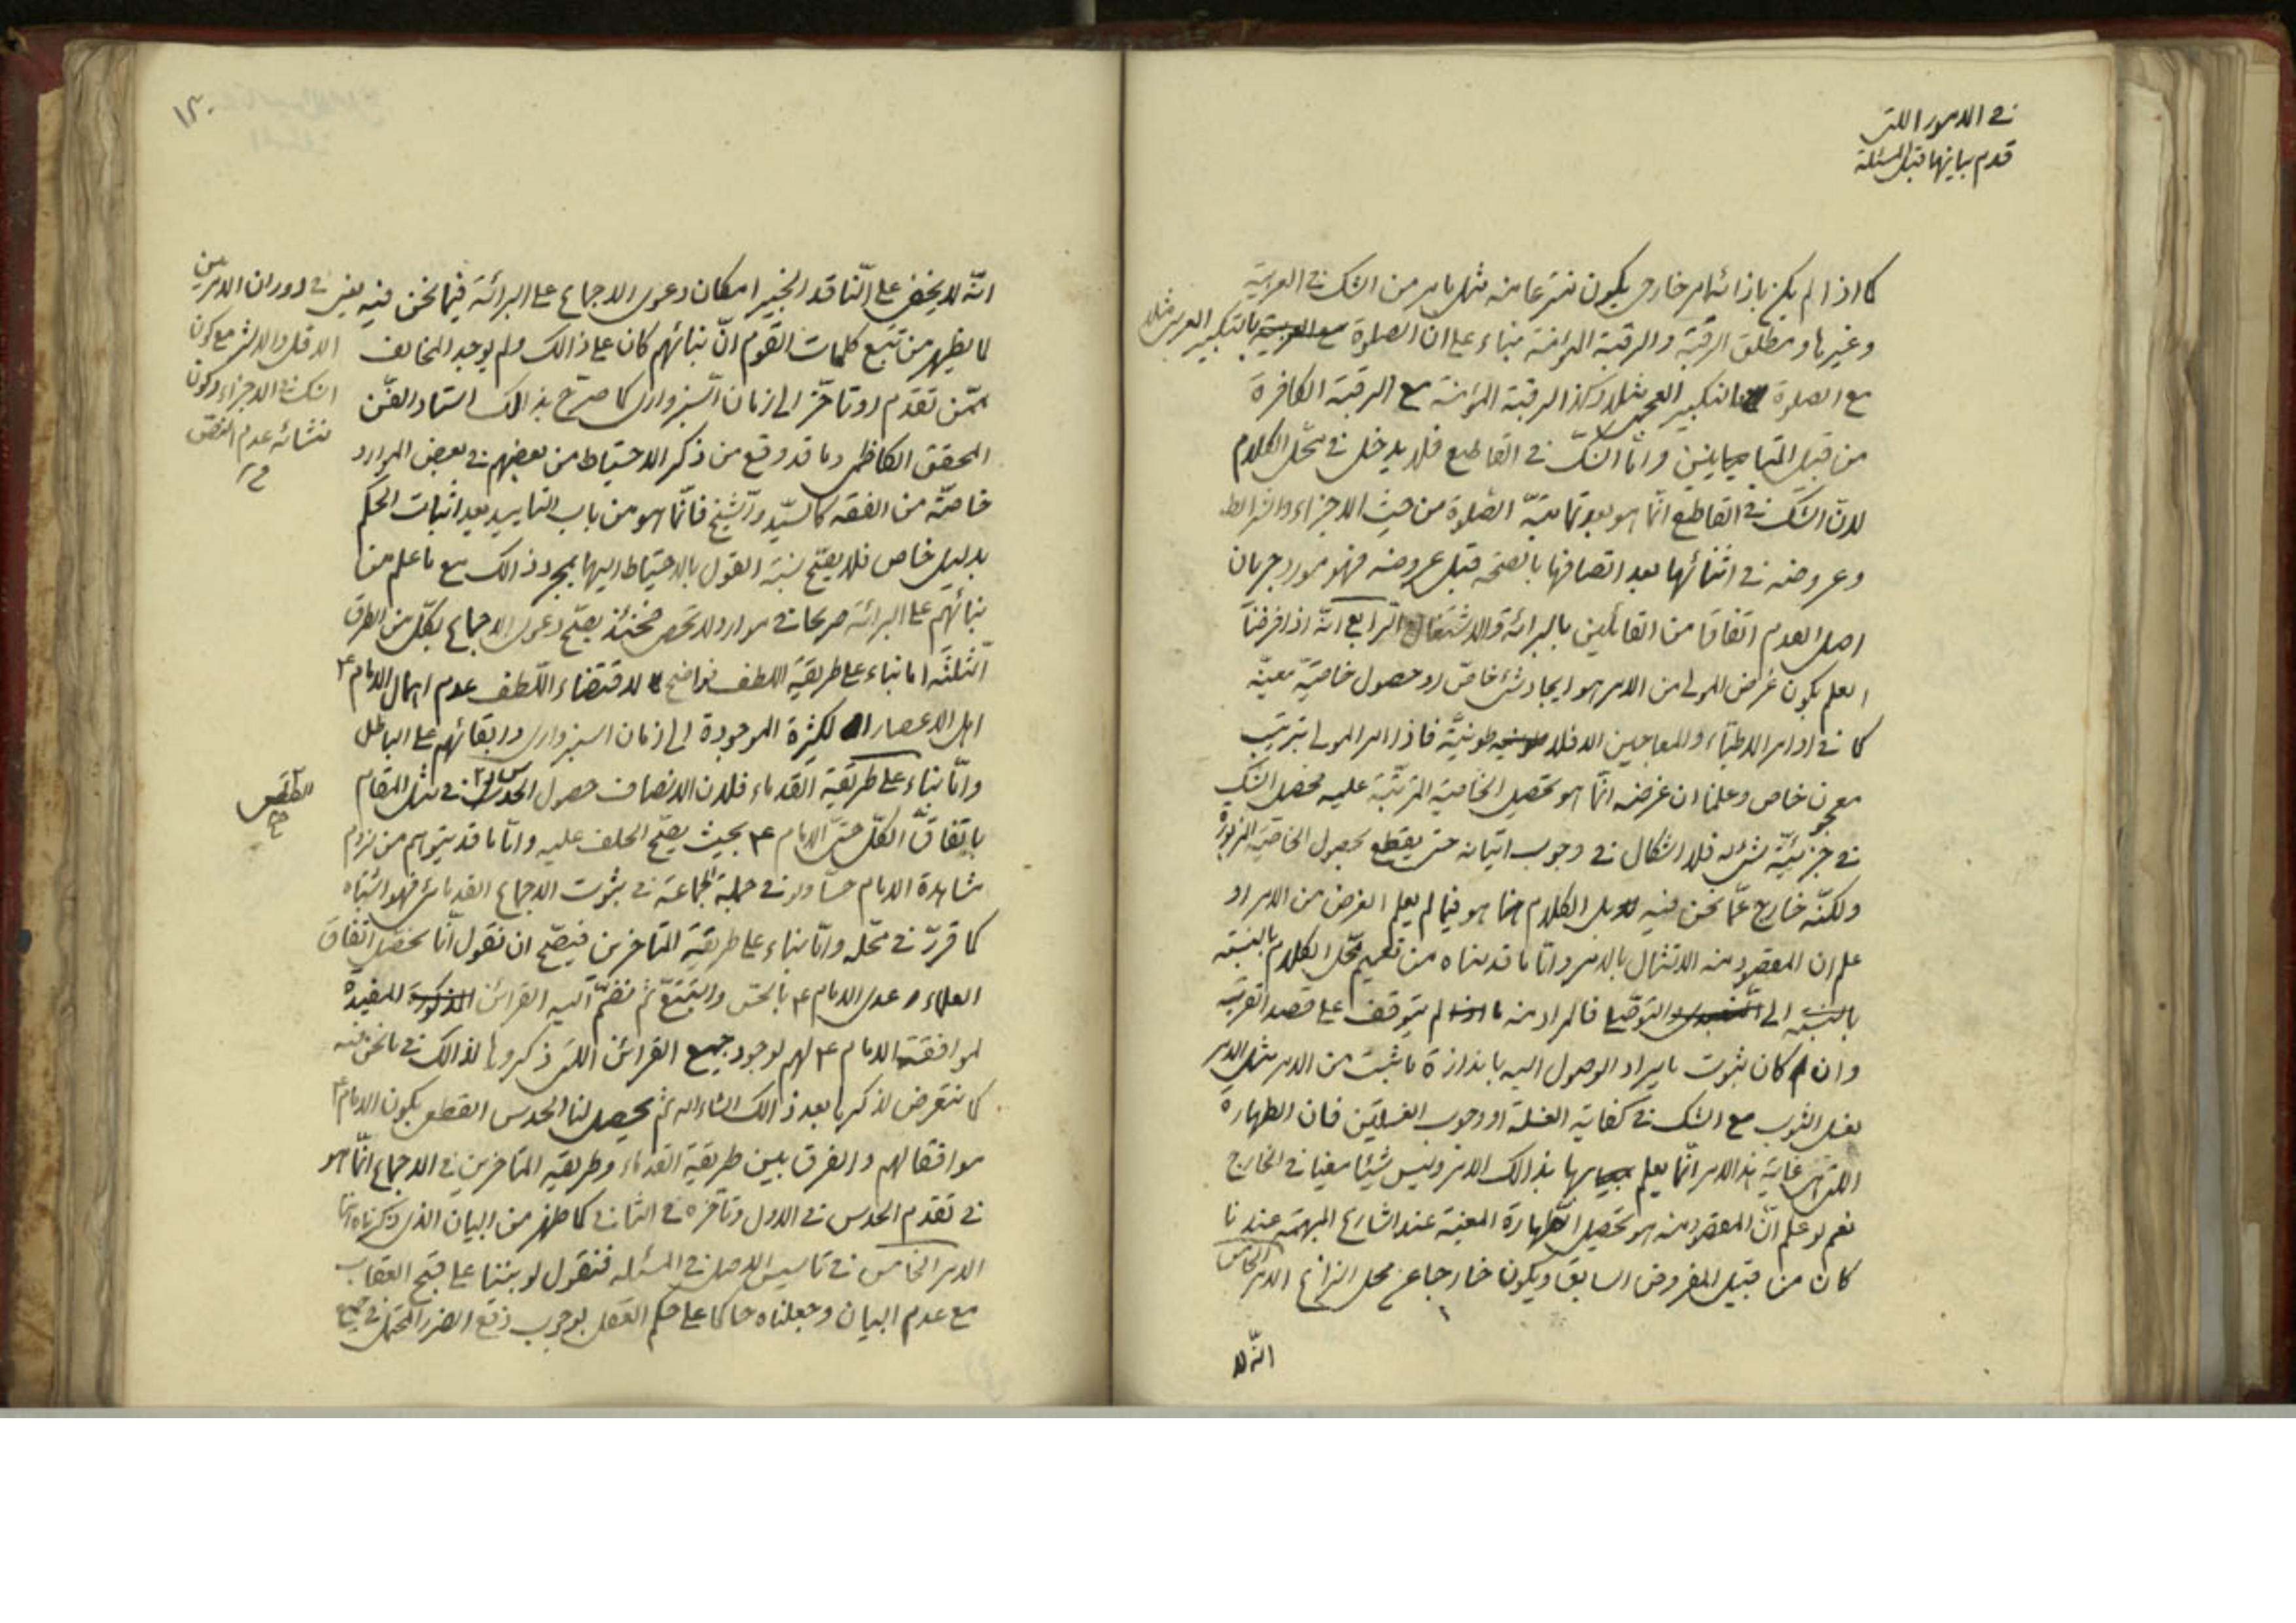 في الامور اللتي
قدم بيانها قبل المسئلة
كما اذا لم يكن بازائه امر خارجي يكون منتزعا منه مثل ما مر من الشك في العربية
وغيرها ومطلق الرقبة والرقبة المؤمنة بناء على ان الصلوة بالتكبير العربي مثلا
مع الصلوة بالتكبير العجمي مثلا وكذا الرقبة المؤمنة مع الرقبة الكافرة
من قبيل المتباينين واما الشك في القاطع فلا يدخل في محل الكلام
لان الشك في القاطع انما هو بعد تمامية الصلوة من حيث الاجزاء والشرائط
وعروضه في اثنائها بعد اتصافها بالصحة قبل عروضه فهو مورد جريان
اصل العدم اتفاقا من القائلين بالبرائة والاشتغال الرابع انه اذا فرضنا
العلم بكون غرض المولى من الامر هو ايجاد شئ خاص او حصول خاصية معينة
كما في اوامر الاطباء والمعاجين الافلاطونية فاذا امر المولى بترتيب
معجون خاص وعلمنا ان غرضه انما هو تحصيل الخاصية المترتبة عليه فحصل الشك
في جزئية شئ له فلا اشكال في وجوب اتيانه حتى يقطع بحصول الخاصية المزبورة
ولكنه خارج عما نحن فيه بل الكلام هو فيما لم يعلم الغرض من الامر او
علم ان المقصود منه الامتثال بالامر واما ما قدمناه من تعميم محل الكلام بالنسبة
بالنسبة الى التوصلي فالمراد منه ما لم يتوقف على قصد القربة
وان كان ثبوت ما يراد الوصول اليه باندازة ما ثبت من الامر مثل الامر
بغسل الثوب مع الشك في كفاية الغسلة او وجوب الغسلتين فان الطهارة
اللتي هي غاية هذا الامر انما يعلم بها بذالك الامر وليس شيئا معينا في الخارج
نعم لو علم ان المقصود منه هو تحصيل الطهارة المعينة عند الشارع المبهمة عندنا
كان من قبيل المفروض السابق ويكون خارجا عن محل النزاع الامر الخامس
انه لا
١٣٠
انه لا يخفى على الناقد الخبير امكان دعوى الاجماع على البرائة فيما نحن فيه يعني في دوران الامر بين
الاقل والاكثر مع كون
الشك في الاجزاء وكون
منشائه عدم النص
لما يظهر من تتبع كلمات القوم ان بنائهم كان على ذالك ولم يوجد المخالف
ممن تقدم او تاخر الى زمان السبزواري كما صرح بذالك استاد الفن
المحقق الكاظمي وما قد وقع من ذكر الاحتياط من بعضهم في بعض الموارد
خاصة من الفقه كالسيد والشيخ فانما هو من باب التاييد بعد اثبات الحكم
بدليل خاص فلا يصح نسبة القول بالاحتياط اليها بمجرد ذالك مع ما علم من
بنائهم على البرائة صريحا في موارد لا تحصى فحينئذ يصح دعوى الاجماع بكل من الطرق
الثلثة اما بناء على طريقة اللطف فواضح لاقتضاء اللطف عدم اهمال الامام ع
اهل الاعصار الكثيرة الموجودة الى زمان السبزواري وابقائهم على الباطل
واما بناء على طريقة القدماء فلان الانصاف حصول الحدس في مثل المقام
القطعي
صح
باتفاق الكل حتى الامام ع بحيث يصح الحلف عليه واما ما قد يتوهم من لزوم
مشاهدة الامام حسا ولو في جملة الجماعة في ثبوت الاجماع القدمائي فهو اشتباه
كما قرر في محله واما بناء على طريقة المتاخرين فيصح ان نقول انا نحصل اتفاق
العلماء عدى الامام ع بالحس والتتبع ثم نضم اليه القرائن المفيدة
لموافقة الامام ع لهم لوجود جميع القرائن اللتي ذكروها لذالك في ما نحن فيه
كما نتعرض لذكرها بعد ذالك انشاء الله ثم يحصل لنا الحدس القطعي بكون الامام ع
موافقا لهم والفرق بين طريقة القدماء وطريقة المتاخرين في الاجماع انما هو
في تقدم الحدس في الاول وتاخره في الثاني كما ظهر من البيان الذي ذكرناه انفا
الامر الخامس في تاسيس الاصل في المسئلة فنقول لو بنينا على قبح العقاب
مع عدم البيان وجعلناه حاكما على حكم العقل بوجوب دفع الضرر المحتمل في جميع